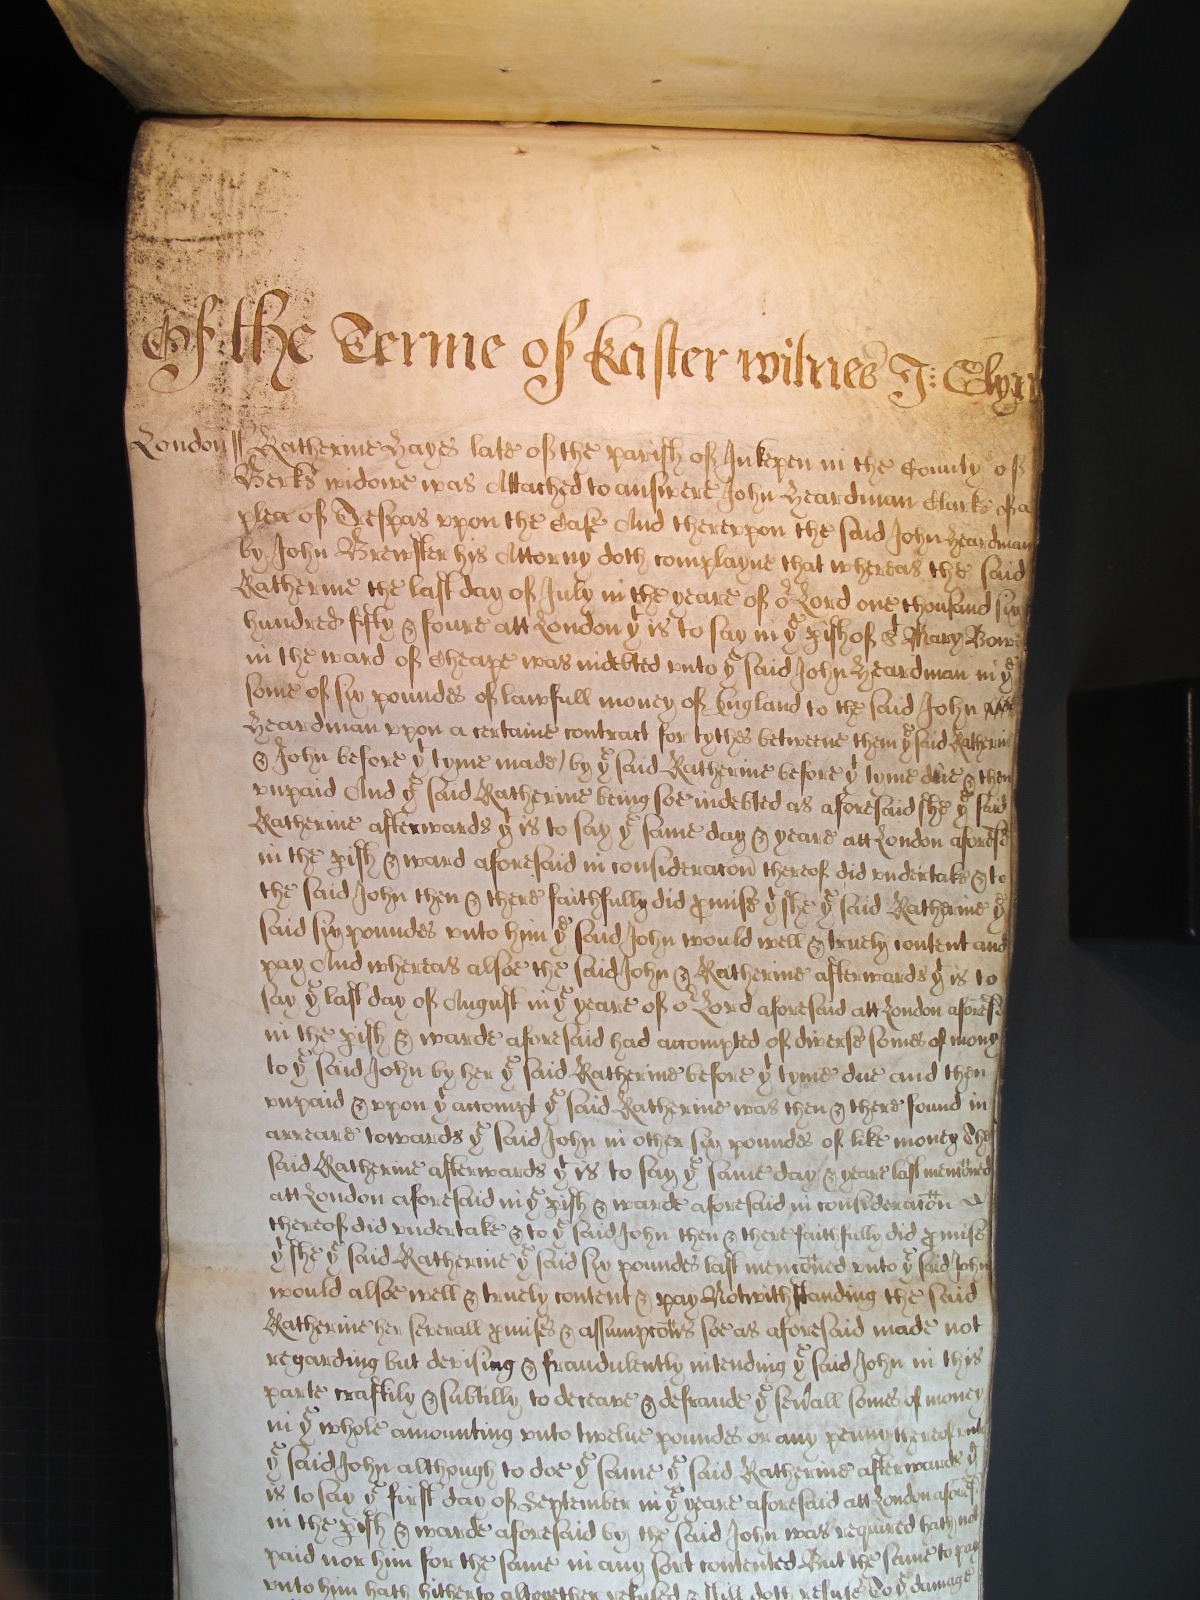 Of the Terme of Easter witnes J: Glyn
London ss Katherine Hayes late of the parish of Inkepen in the County of
Berks widowe was Attached to answere John Heardman Clarke of a
plea of Trespas upon the Case And thereupon the said John Heardman
by John Brewster his Attorny doth complayne that whereas the said
Katherine the last day of July in the yeare of or Lord one thousand six
hundred fifty & foure att London yt is to say in ye pish of St Mary Bowe
in the ward of Cheape was indebted unto ye said John Heardman in ye
some of six poundes of lawfull money of England to the said John
Heardman upon a certaine contract for tythes betweene them ye said Katherine
& John before yt tyme made by ye said Katherine before yt tyme due & then
unpaid And ye said Katherine being soe indebted as aforesaid she ye said
Katherine afterwards yt is to say ye same day & yeare att London aforese
in the pish & ward aforesaid in consideracon thereof did undertake & to
the said John then & there faithfully did pmise yt she ye said Katherine ye
said six poundes unto him ye said John would well & truely content and
pay And whereas alsoe the said John & Katherine afterwards yt is to
say ye last day of August in ye yeare of or Lord aforesaid att London aforese
in the pish & warde aforesaid had accompted of diverse somes of mony
to ye said John by her ye said Katherine before yt tyme due and then
unpaid & upon yt accompt ye said Katherine was then & there found in
arreare towards ye said John in other six poundes of like money she
said Katherine afterwards yt is to say ye same day & yeare last menconed
att London aforesaid in ye pish & warde aforesaid in consideracon
thereof did undertake & to ye said John then & there faithfully did pmise
yt she ye said Katherine ye said six poundes last menconed unto ye said John
would alsoe well & truely content & pay Notwithstanding the said
Katherine her severall pmises & assumpcons soe as aforesaid made not
regarding but devising & fraudulently intending ye said John in this
parte craftily & subtilly to deceave & defraude ye sevall somes of money
in ye whole amounting unto twelve poundes or any penny thereof unto
ye said John although to doe ye same ye said Katherine afterwards yt
is to say ye first day of September in ye yeare aforesaid att London aforese
in the pish & warde aforesaid by the said John was required hath not
paid nor him for the same in any sort contented But the same to pay
unto him hath hitherto altogether refused & still doth refuse To ye damage